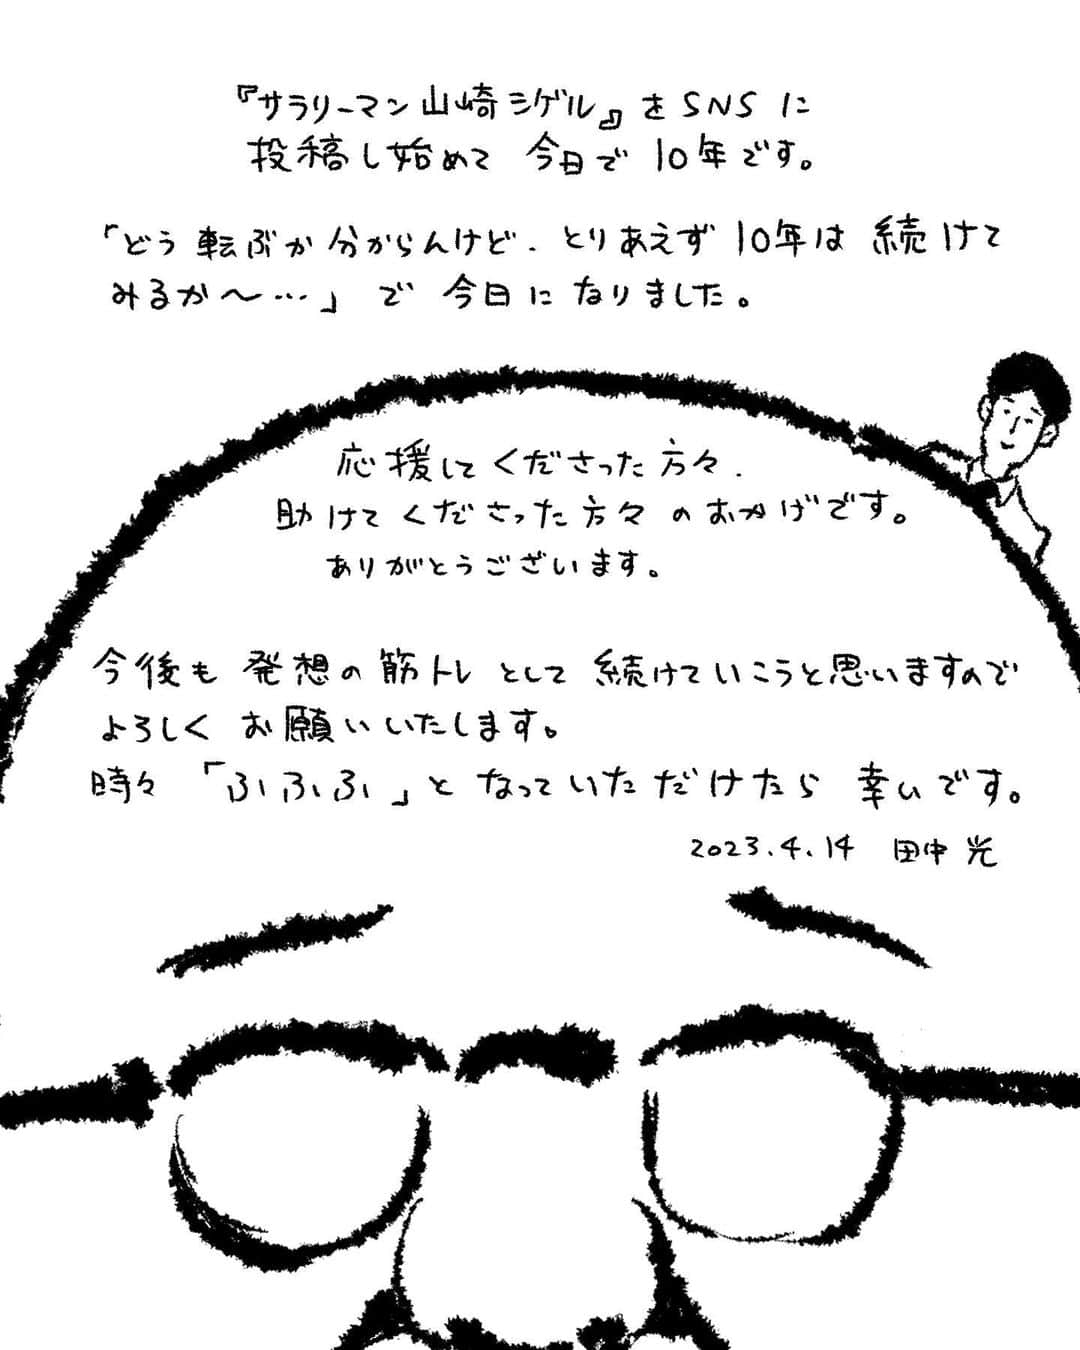 『サラリーマン山崎シゲル』をSNSに
投稿し始めて 今日で 10年です。
「どう転ぶか分からんけど、とりあえず10年は続けて
みるか〜…」で 今日に なりました。
応援してくださった方々、
助けてくださった方々のおかげです。
ありがとうございます。
今後も 発想の筋トレ として 続けていこうと思いますので
よろしく お願いいたします。
時々 「ふふふ」と なっていただけたら 幸いです。
2023.4.14 田中 光